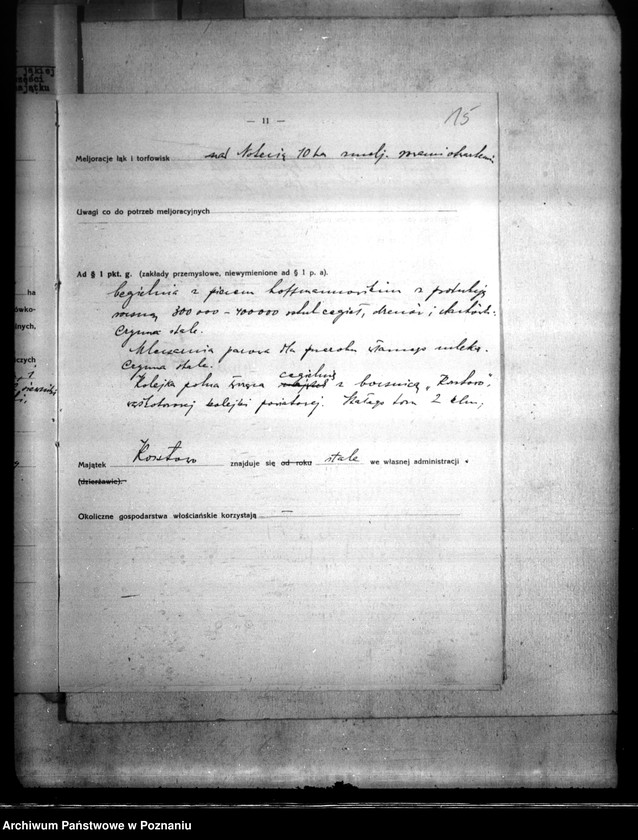 jakiej
ości
ajątku
— 11 —
15
Meljoracje łąk i torfowisk nad Notecią 10 ha zmelj.
Uwagi co do potrzeb meljoracyjnych
Ad § 1 pkt. g. (zakłady przemysłowe, niewymienione ad § 1 p. a).
Cegielnia z piecem hoffmannowskim z produkcją
roczną 300 000 – 400 000 sztuk cegieł, drenów i dachówki.
Czynna stale.
Mleczarnia parowa dla przerobu własnego mleka.
Czynna stale.
cegielnię
Kolejka polna łącząca z bocznicą „Kosztowo”
wąskotorowej kolejki powiatowej. Stałego toru 2 klm.
Majątek Kosztowo znajduje się od roku stale we własnej administracji .
(dzierżawie).
Okoliczne gospodarstwa włościańskie korzystają —
ha
ówko-
lnych,
czych
Archiwum Państwowe w Poznaniu